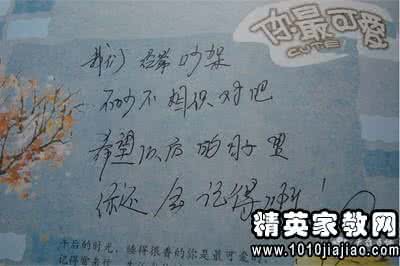 你最可爱
CUTE
我们 经常吵架
不吵不相识对吧
希望以后的日子里
你还会记得
午后的时光，睡得很香的你是最可爱
精英家教网
www.1010jiajiao.com